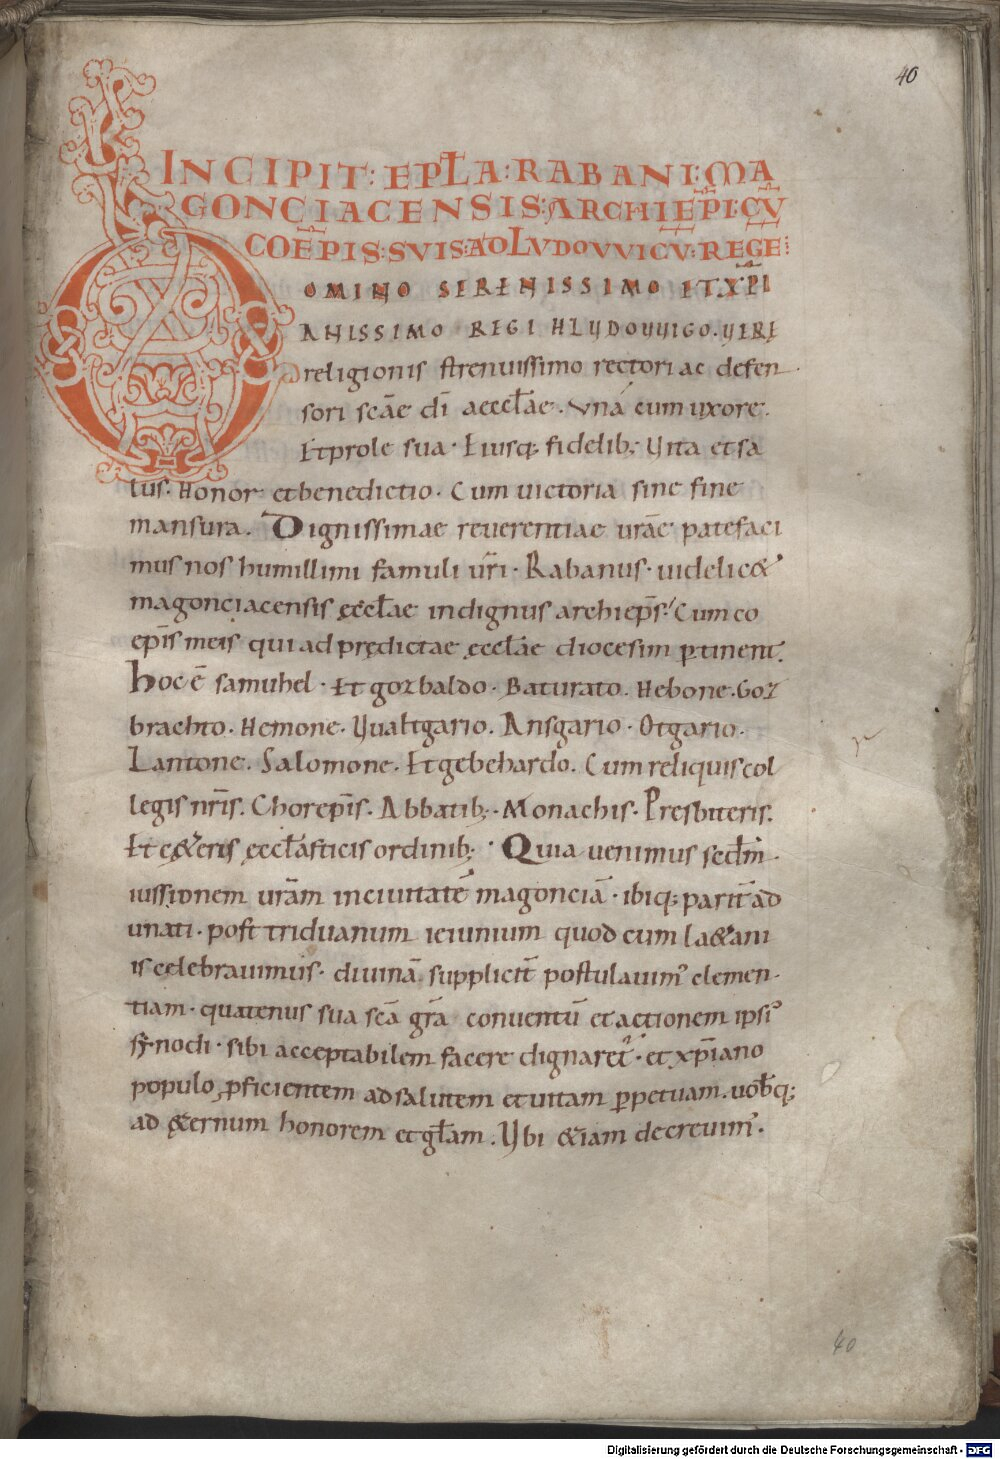 40
INCIPIT: EPLA: RABANI: MA
GONCIACENSIS: ARCHIEPI: CV̄
COEPIS: SVIS: AD LVDOVVICV̄: REGE:
DOMINO SERENISSIMO ET XP̄I
ANISSIMO REGI HLVDOVVIGO. VERE
religionis strenuissimo rectori ac defen
sori scāe dī aeccłae. Vna cum uxore.
Et prole sua. Eiusq; fidelib; Vita et sa
lus. Honor et benedictio. Cum uictoria sine fine
mansura. Dignissimae reuerentiae urāe patefaci
mus nos humillimi famuli ur̄i. Rabanus. uidelic&
magonciacensis ęccłae indignus archiep̄s. Cum co
ep̄is meis qui ad prędictae ęccłae diocesim ꝑtinent.
hoc ē samuhel. Et gozbaldo. Baturato. Hebone. Goz
brachto. Hemone. Vualtgario. Ansgario. Otgario.
Lantone. Salomone. Et gebehardo. Cum reliquis col
legis nr̄is. Chorep̄is. Abbatib;. Monachis. Presbiteris.
Et c&eris ęccłasticis ordinib; Quia uenimus secdm̄
iussionem urām in ciuitatē magonciā. ibiq; parit̄ ad
unati. post triduanum ieiunium quod cum la&ani
is celebrauimus. diuinā supplicit̄ postulauim' clemen
tiam. quatenus sua scā grā conuentū et actionem ipsi'
synodi. sibi acceptabilem facere dignaret'. et xp̄iano
populo ꝓficientem ad salutem et uitam ꝑpetuam. uobq;
ad &ernum honorem et głam. Vbi &iam decreuim'.
40
Digitalisierung gefördert durch die Deutsche Forschungsgemeinschaft - DFG